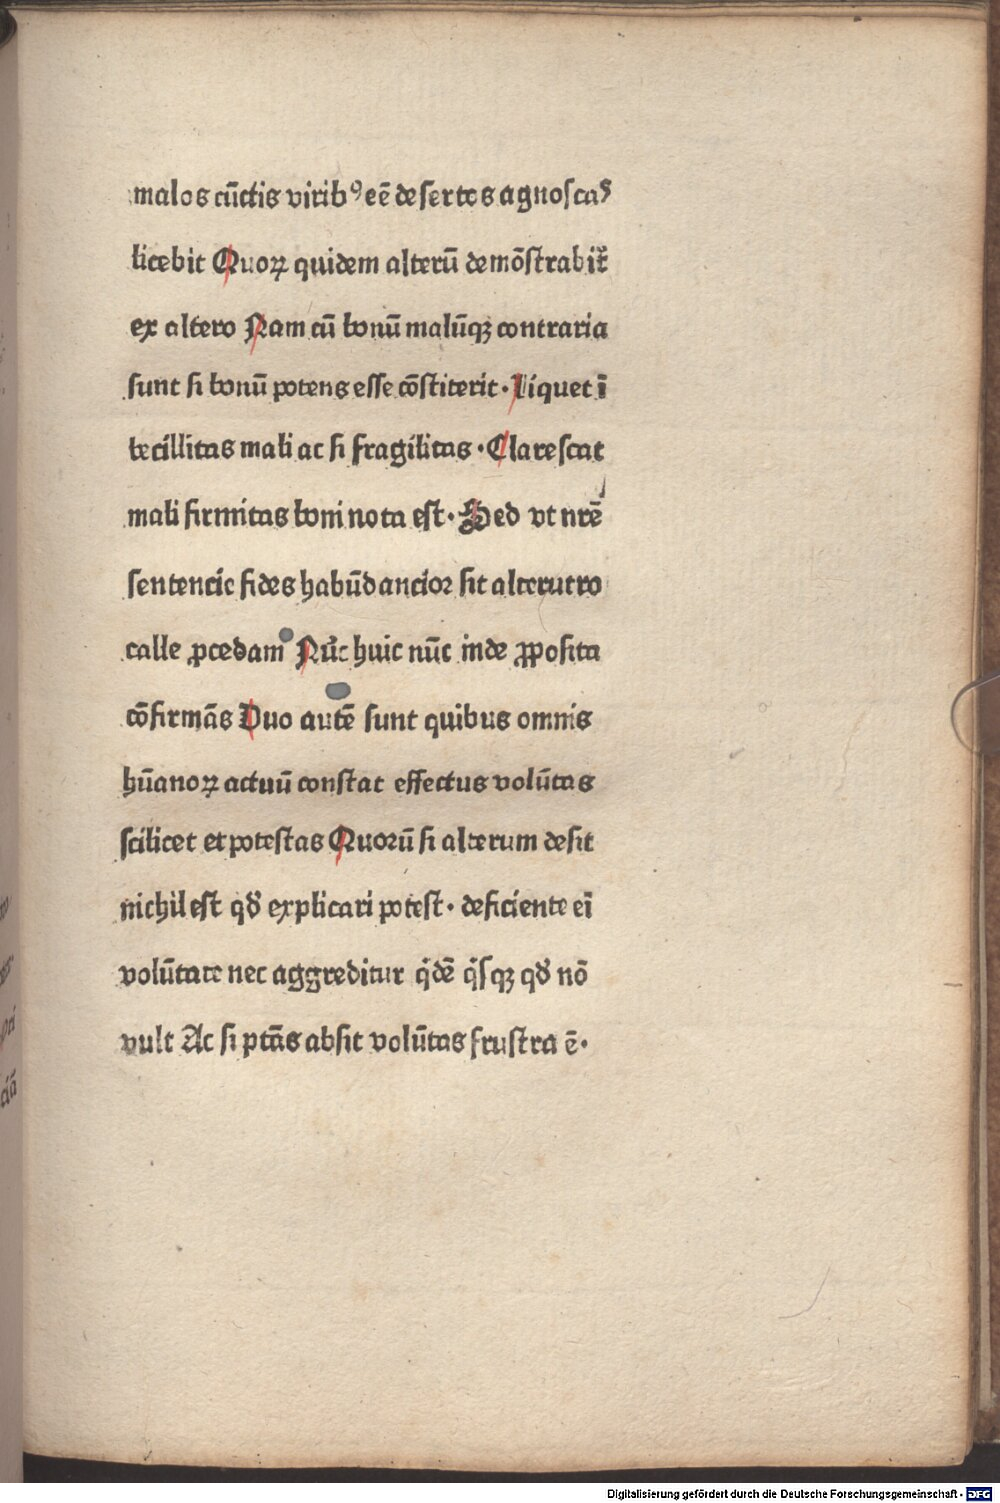 malos cūctis virib⁹ eē desertos agnoscas
licebit Quoꝝ quidem alterū demōstrabit᷑
ex altero Nam cū bonū malūqꝫ contraria
sunt si bonū potens esse cōstiterit · Liquet ī
becillitas mali ac si fragilitas · Clarescat
mali firmitas boni nota est · Sed vt nrē
sentencie fides habūdancior sit alterutro
calle ꝓcedam Nūc huic nūc inde ꝓposita
cōfirmās Duo autē sunt quibus omnis
hūanoꝝ actuū constat effectus volūtas
scilicet et potestas Quorū si alterum desit
nichil est qd̄ explicari potest · deficiente ei̅
volūtate nec aggreditur q̇dē q̇sqꝫ qd̄ nō
vult Ac si ptās absit volūtas frustra ē ·
Digitalisierung gefördert durch die Deutsche Forschungsgemeinschaft - DFG